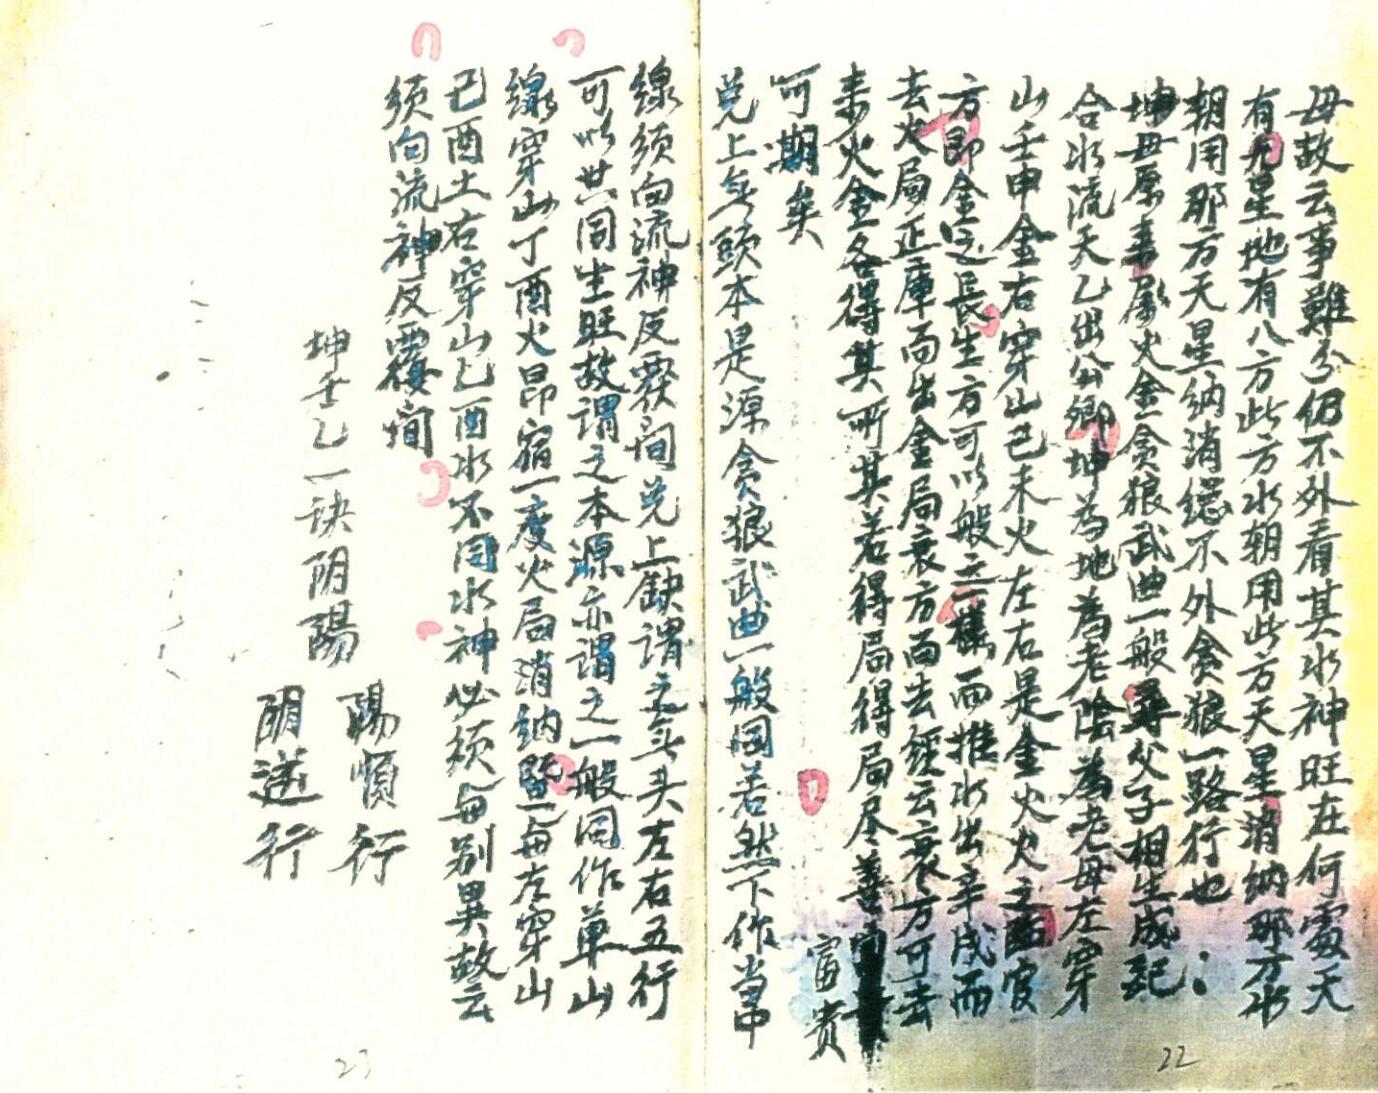 母故云事難分仍不外看其水神旺在何處天
有九星地有八方此方水朝用此方天星消納那方水
朝用那方天星納消總不外貪狼一路行也
坤母原来屬火金貪狼武曲一般尋父子相生成配
合水流天乙出公卿坤為地為老陰為老母左穿
山壬申金右穿山己未火左右是金火火主西官
方即金之長生方可以般之一樣而推水出辛戌而
去火局正庫而出金局衰方而去經云衰方可去
来火金各得其所其若得局得局尽善富貴
可期矣
兑上無頭本是源貪狼武曲一般同若然下作当中
線须向流神反覆间兑上缺謂之無头左右五行
可以共同生旺故謂之本源亦謂之一般同作单山
線穿山丁酉火昂宿一度火局消納無与左穿山
己酉土右穿山乙酉水不同水神必须与别異故云
须向流神反覆间
坤壬乙一诀阴陽
陽順行
阴逆行
23
22